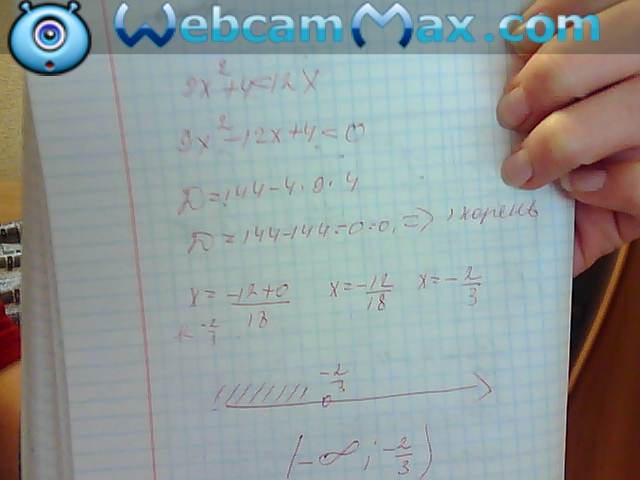 WebcamMax.com
9x²+4<12x
9x²-12x+4<0
D=144-4·9·4
D=144-144=0=0, => 1 корень
x= -12+0/18 x=-12/18 x=-2/3
-2/3
-2/3
(-∞; -2/3)